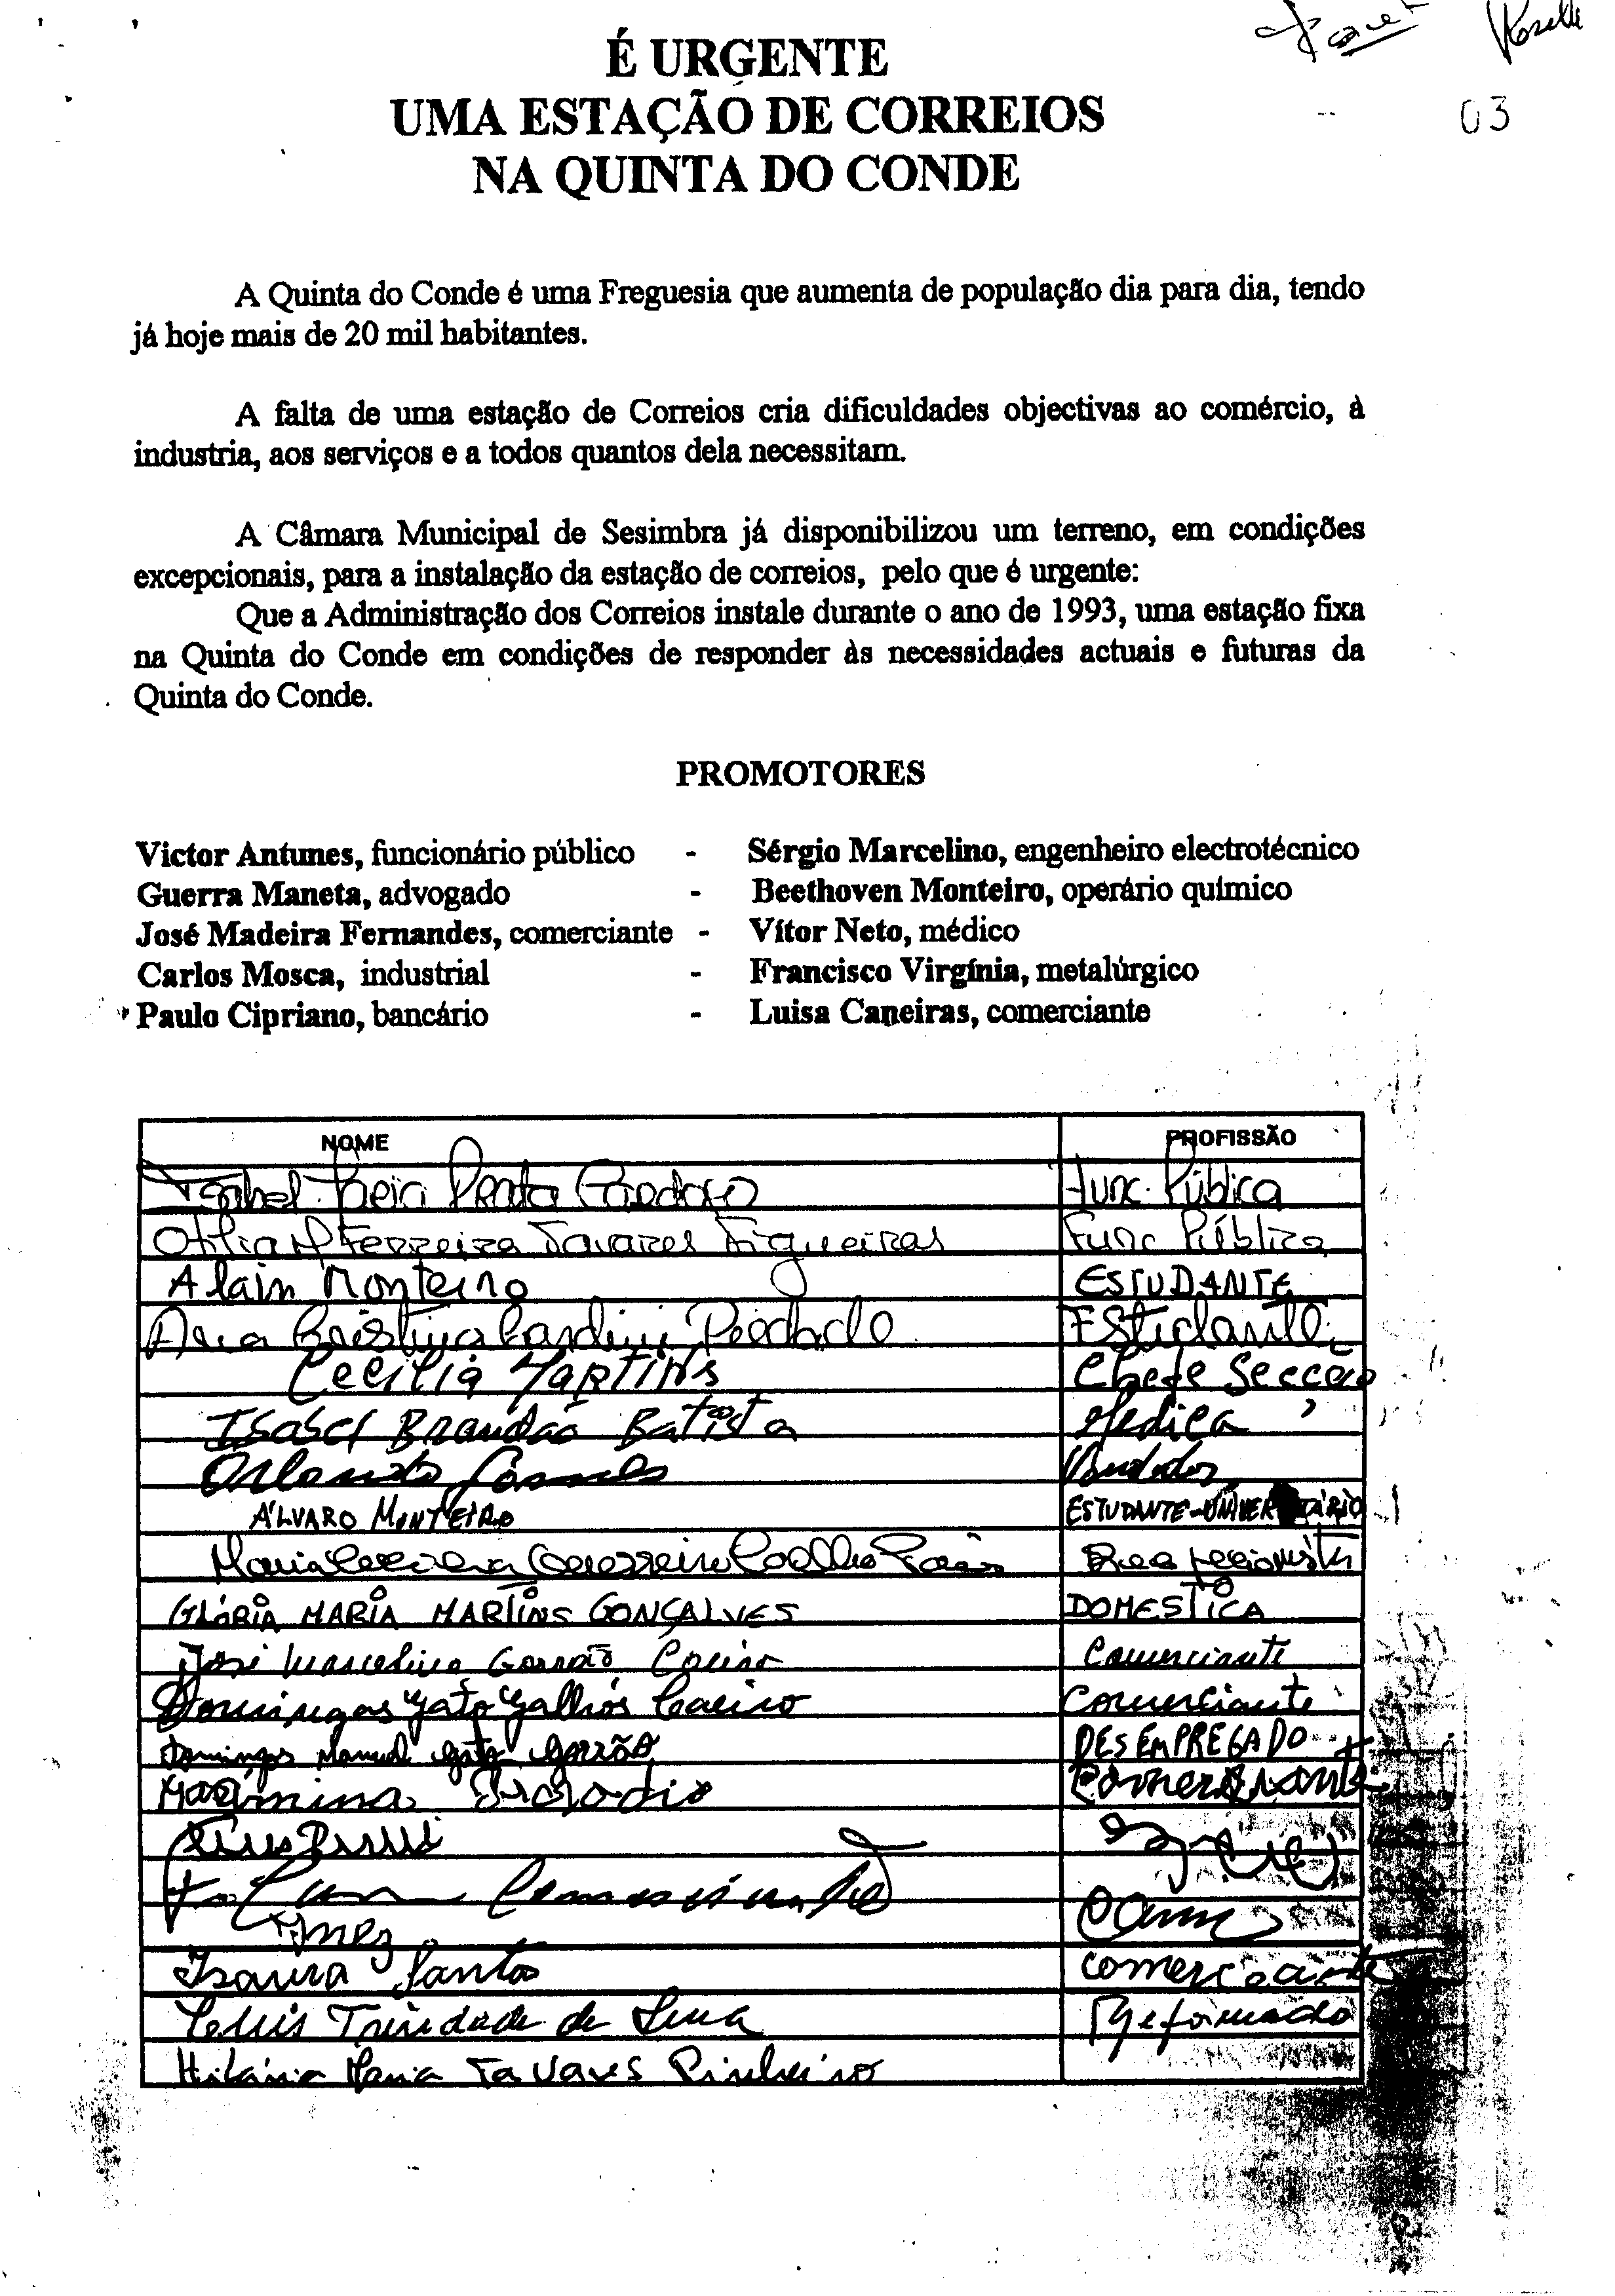 03
É URGENTE
UMA ESTAÇÃO DE CORREIOS
NA QUINTA DO CONDE
A Quinta do Conde é uma Freguesia que aumenta de população dia para dia, tendo
já hoje mais de 20 mil habitantes.
A falta de uma estação de Correios cria dificuldades objectivas ao comércio, à
industria, aos serviços e a todos quantos dela necessitam.
A Câmara Municipal de Sesimbra já disponibilizou um terreno, em condições
excepcionais, para a instalação da estação de correios, pelo que é urgente:
Que a Administração dos Correios instale durante o ano de 1993, uma estação fixa
na Quinta do Conde em condições de responder às necessidades actuais e futuras da
Quinta do Conde.
PROMOTORES
Victor Antunes, funcionário público - Sérgio Marcelino, engenheiro electrotécnico
Guerra Maneta, advogado - Beethoven Monteiro, operário químico
José Madeira Fernandes, comerciante - Vítor Neto, médico
Carlos Mosca, industrial - Francisco Virgínia, metalúrgico
Paulo Cipriano, bancário - Luisa Caneiras, comerciante
NOME PROFISSÃO
Isabel Prata Cardoso Func. Pública
Otilia M Ferreira Tavares Figueiras Func Pública
Alain Monteiro ESTUDANTE
Ana Cristina Piedade Estudante
Cecilia Martins Chefe Secção
Isabel Brandão Batista Medica
Orlando Vendedor
ÁLVARO MONTEIRO ESTUDANTE-UNIVERSITÁRIO
Maria Guerreiro Coelho Recepcionista
GLÓRIA MARIA MARTINS GONÇALVES DOMESTICA
José Marcelino Garrão Caeiro Comerciante
Domingas Gato Galhós Caeiro Comerciante
Domingos Manuel Gato Garrão DESEMPREGADO
Comerciante
Inez
Isaura Santos comerciante
Trindade de Reformado
Hilária Maria Tavares Pinheiro